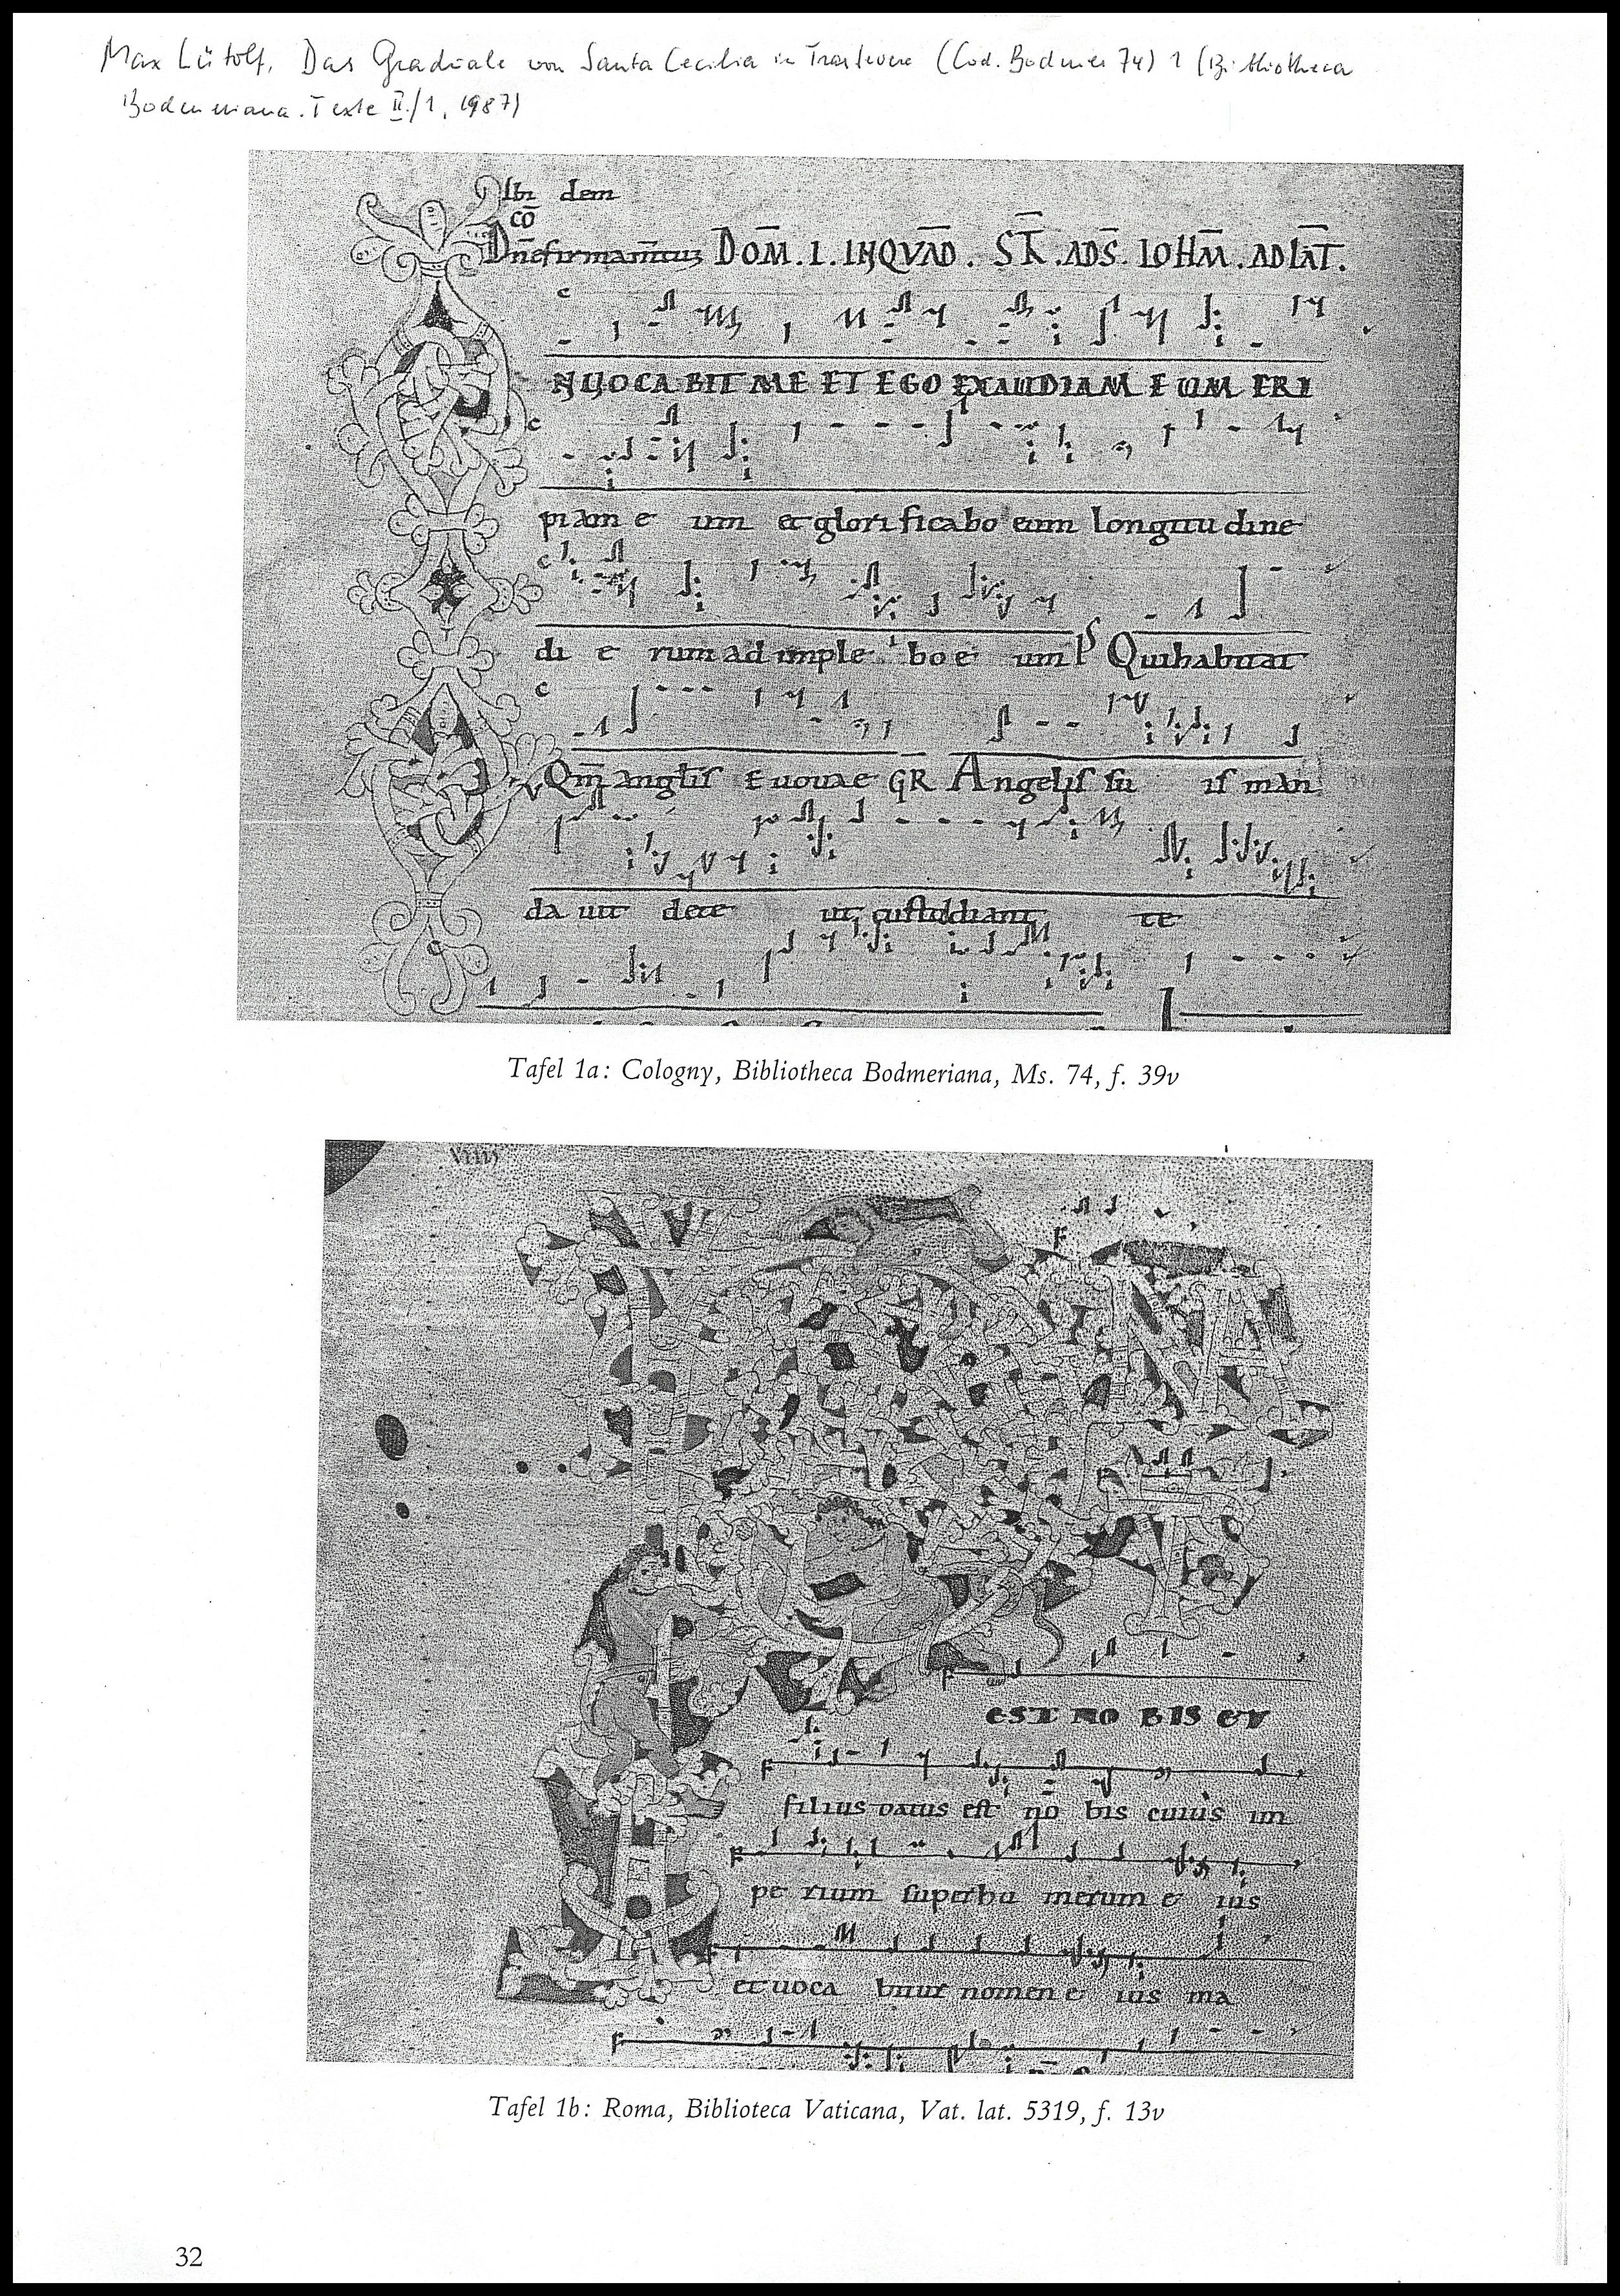 Max Lütolf, Das Graduale von Santa Cecilia in Trastevere (Cod. Bodmer 74) 1 (Bibliotheca
Bodmeriana. Texte II./1, 1987)
Ibi dem
cō
Dn̄efirmam̄tuz DOM̄.I.INQVAD̄. ST̄.ADS̄.IOHM̄.ADLAT̄.
c
NUOCA BIT ME ET EGO EXAUDIAM E UM ERI
c
piam e um et glori ficabo eum longitu dine
c
di e rum ad imple bo e um Ps Quihabitat
c
v Qm̄ angl̄is Euouae GR Angelis su is man
da uit dete ut custodiant te
Tafel 1a: Cologny, Bibliotheca Bodmeriana, Ms. 74, f. 39v
VIIII
F
F
EST NO BIS ET
F
filius datus est no bis cuius im
F
pe rium super hu merum e ius
et uoca bitur nomen e ius ma
F
Tafel 1b: Roma, Biblioteca Vaticana, Vat. lat. 5319, f. 13v
32